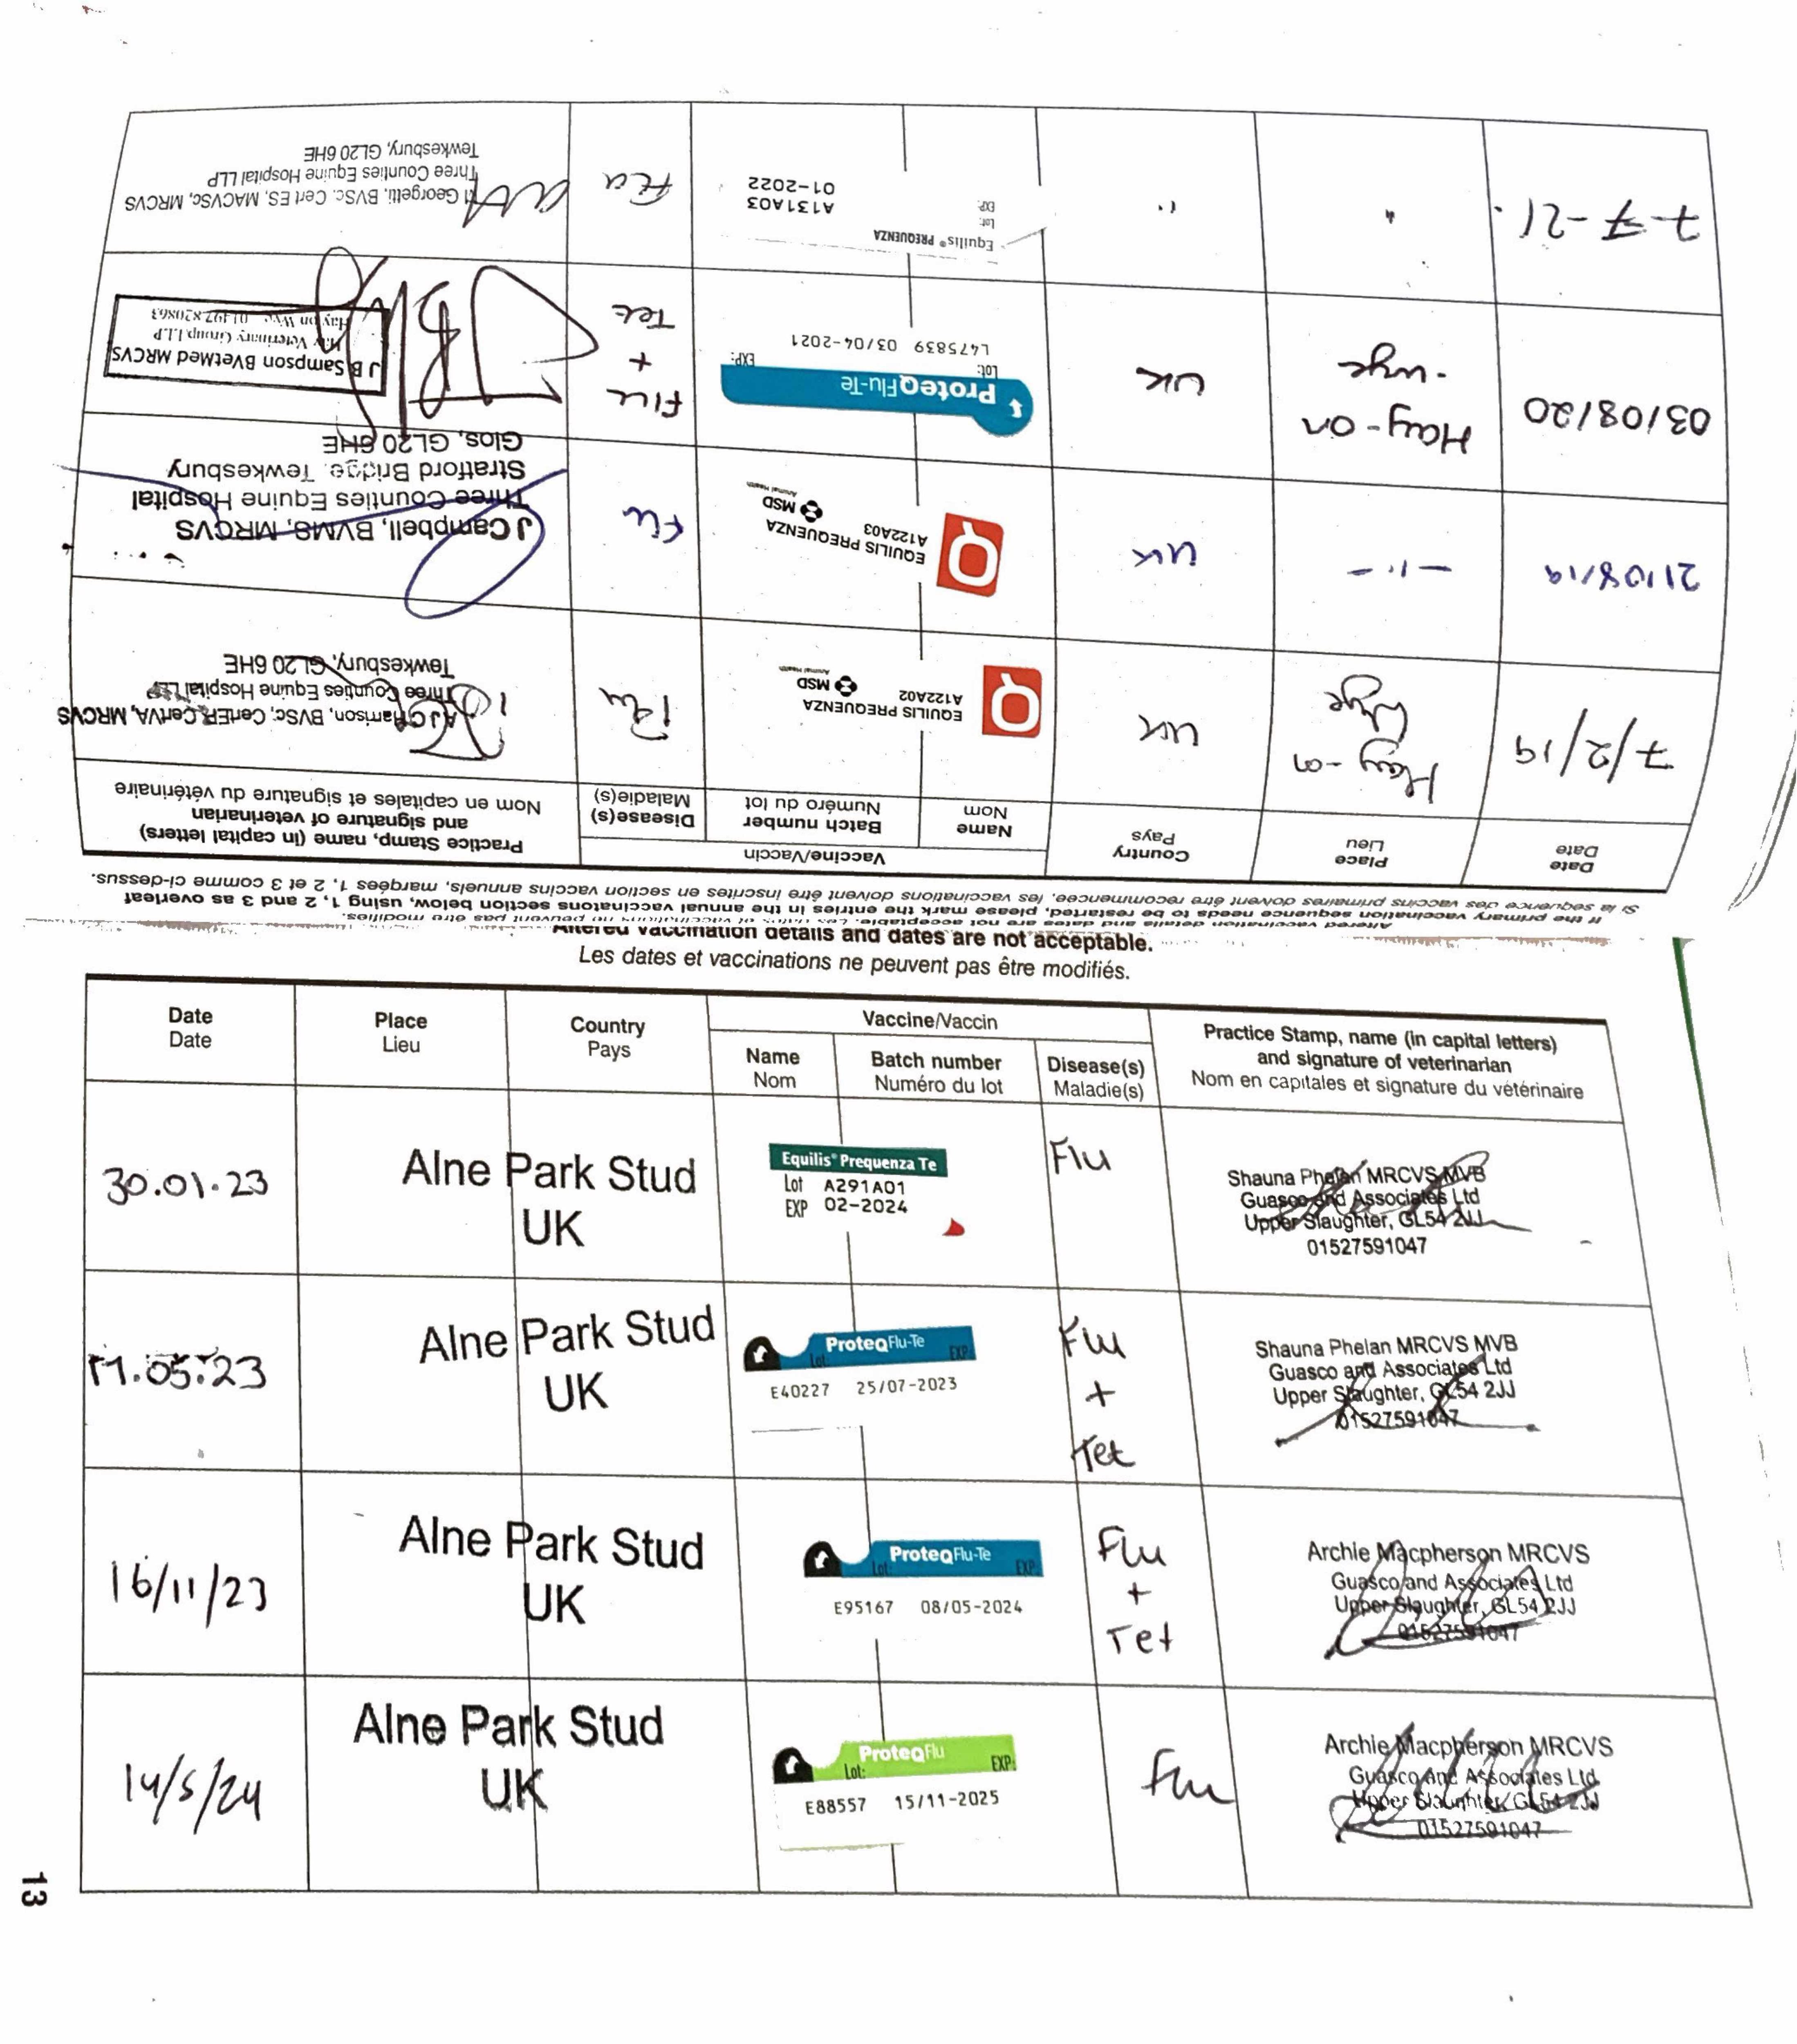 Altered vaccination details and dates are not acceptable.
If the primary vaccination sequence needs to be restarted, please mark the entries in the annual vaccinatons section below, using 1, 2 and 3 as overleaf
Si la sequence des vaccins primaires doivent être recommencee, les vaccinations doivent être inscrites en section vaccins annuels, marqées 1, 2 et 3 comme ci-dessus.
Date
Date
Place
Lieu
Country
Pays
Vaccine/Vaccin
Name
Nom
Batch number
Numéro du lot
Disease(s)
Maladie(s)
Practice Stamp, name (in capital letters)
and signature of veterinarian
Nom en capitales et signature du vétérinaire
7/2/19
Hay-on
Wye
UK
EQUILIS PREQUENZA
A122A02
MSD
Animal Health
Flu
AJC Harrison, BVSc, CertER, CertVA, MRCVS
Three Counties Equine Hospital LLP
Tewkesbury, GL20 6HE
21/08/19
-"-
UK
EQUILIS PREQUENZA
A122A03
MSD
Animal Health
Flu
J Campbell, BVMS, MRCVS
Three Counties Equine Hospital
Stratford Bridge, Tewkesbury
Glos, GL20 6HE
03/08/20
Hay-on
-wye
UK
ProteqFlu-Te
Lot:
EXP:
L475839 03/04-2021
Flu
+
Tet
J B Sampson BVetMed MRCVS
Hay Veterinary Group LLP
Hay on Wye 01497 820863
7-7-21.
"
"
Equilis® PREQUENZA
Lot:
EXP:
A131A03
01-2022
Flu
Georgetti, BVSc. Cert ES, MACVSc, MRCVS
Three Counties Equine Hospital LLP
Tewkesbury, GL20 6HE
Altered vaccination details and dates are not acceptable.
Les dates et vaccinations ne peuvent pas être modifiés.
Date
Date
Place
Lieu
Country
Pays
Vaccine/Vaccin
Name
Nom
Batch number
Numéro du lot
Disease(s)
Maladie(s)
Practice Stamp, name (in capital letters)
and signature of veterinarian
Nom en capitales et signature du vétérinaire
30.01.23
Alne Park Stud
UK
Equilis® Prequenza Te
Lot A291A01
EXP 02-2024
Flu
Shauna Phelan MRCVS MVB
Guasco and Associates Ltd
Upper Slaughter, GL54 2JJ
01527591047
.05.23
Alne Park Stud
UK
ProteqFlu-Te
Lot:
EXP:
E40227 25/07-2023
Flu
+
Tet
Shauna Phelan MRCVS MVB
Guasco and Associates Ltd
Upper Slaughter, GL54 2JJ
01527591047
16/11/23
Alne Park Stud
UK
ProteqFlu-Te
Lot:
EXP:
E95167 08/05-2024
Flu
+
Tet
Archie Macpherson MRCVS
Guasco and Associates Ltd
Upper Slaughter, GL54 2JJ
01527591047
14/5/24
Alne Park Stud
UK
ProteqFlu
Lot:
EXP:
E88557 15/11-2025
Flu
Archie Macpherson MRCVS
Guasco and Associates Ltd
Upper Slaughter, GL54 2JJ
01527591047
13